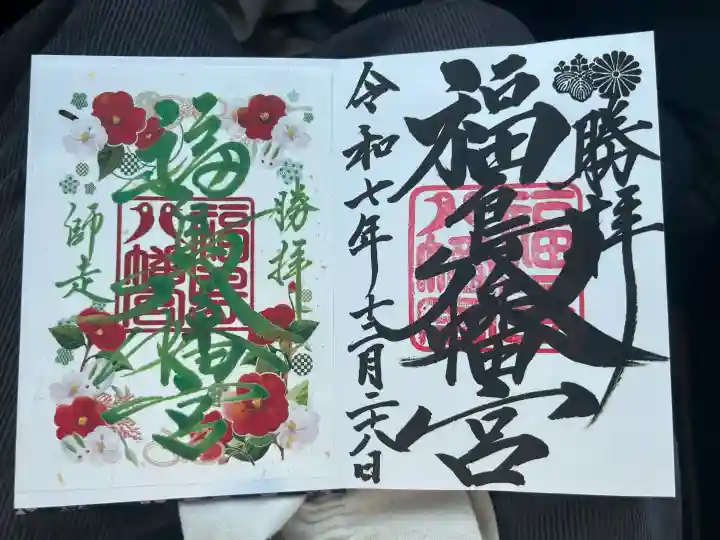 勝拝
福島八幡宮
福島
八幡宮
令和七年十二月二十八日
勝拝
福島八幡宮
福島
八幡宮
師走